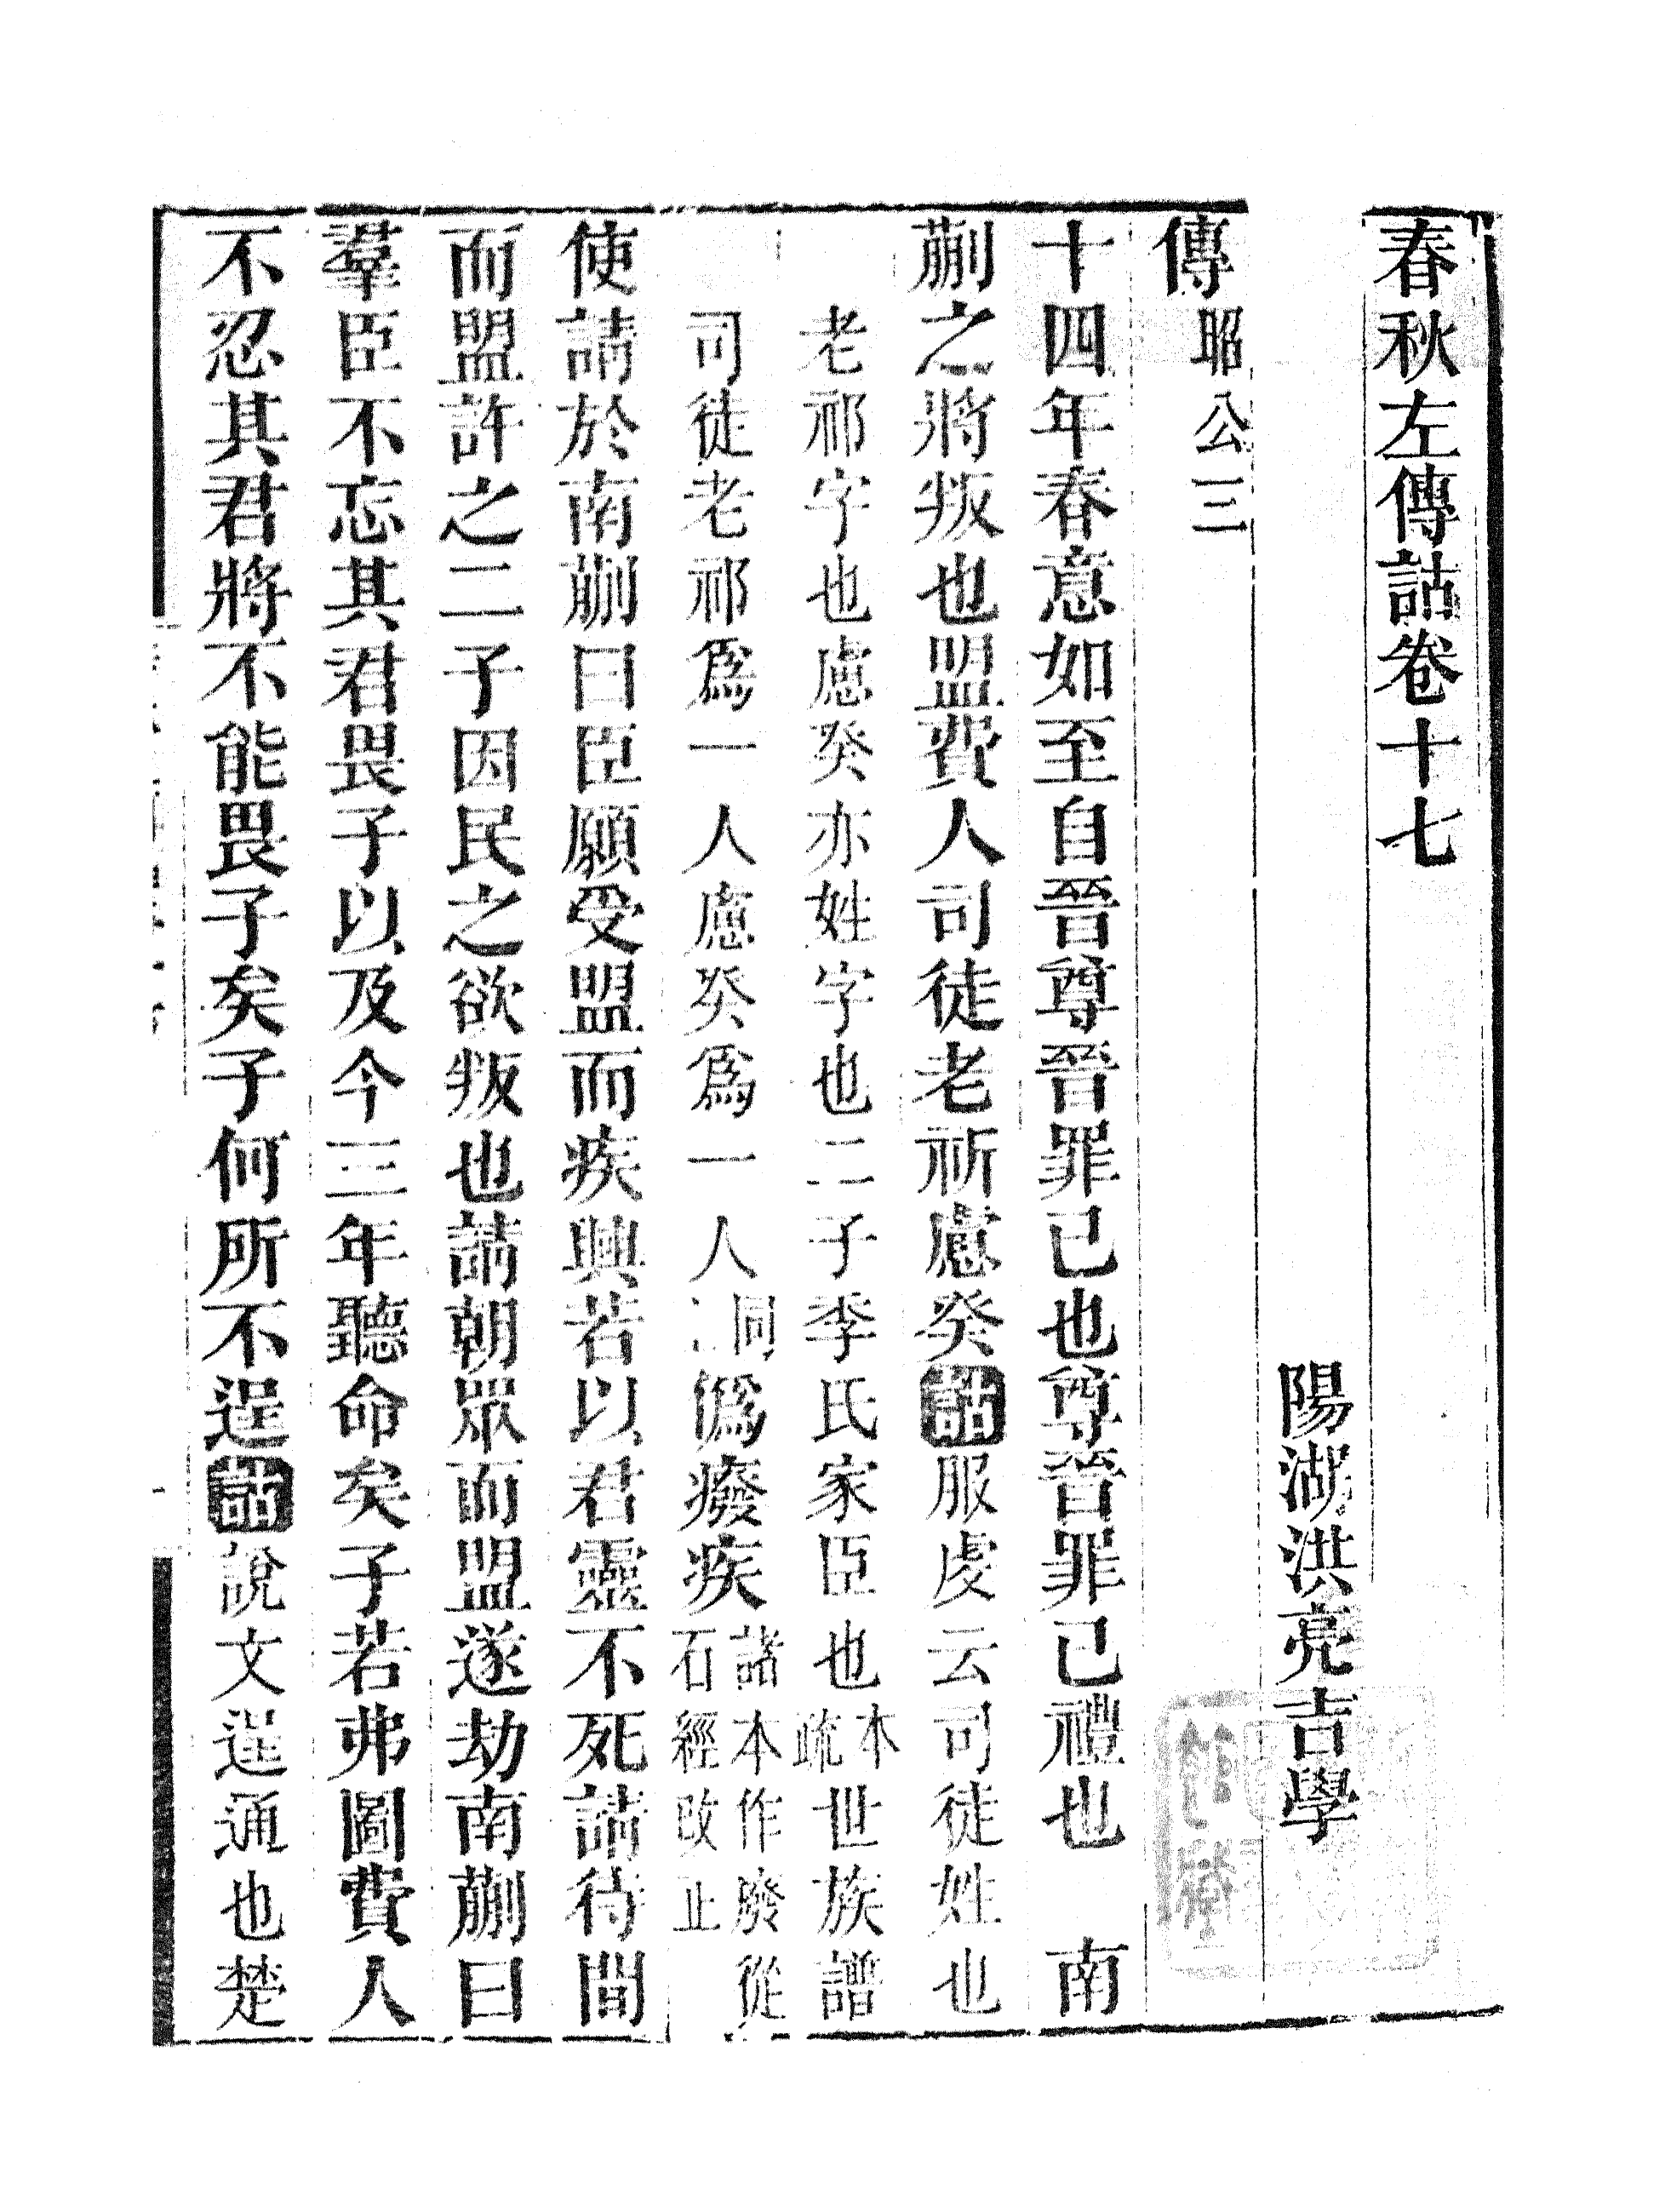 春秋左傳詁卷十七
陽湖洪亮吉學
傳昭公三
十四年春意如至自晉尊晉罪已也尊晉罪已禮也　南
蒯之將叛也盟費人司徒老祈慮癸詁服虔云司徒姓也
老祁字也慮癸亦姓字也二子季氏家臣也本疏世族譜
司徒老祁爲一人慮癸爲一人同僞癈疾諸本作廢從石經改止
使請於南蒯曰臣願受盟而疾興若以君靈不死請待閒
而盟許之二子因民之欲叛也請朝眾而盟遂劫南蒯曰
羣臣不忘其君畏子以及今三年聽命矣子若弗圖費人
不忍其君將不能畏子矣子何所不逞詁說文逞通也楚